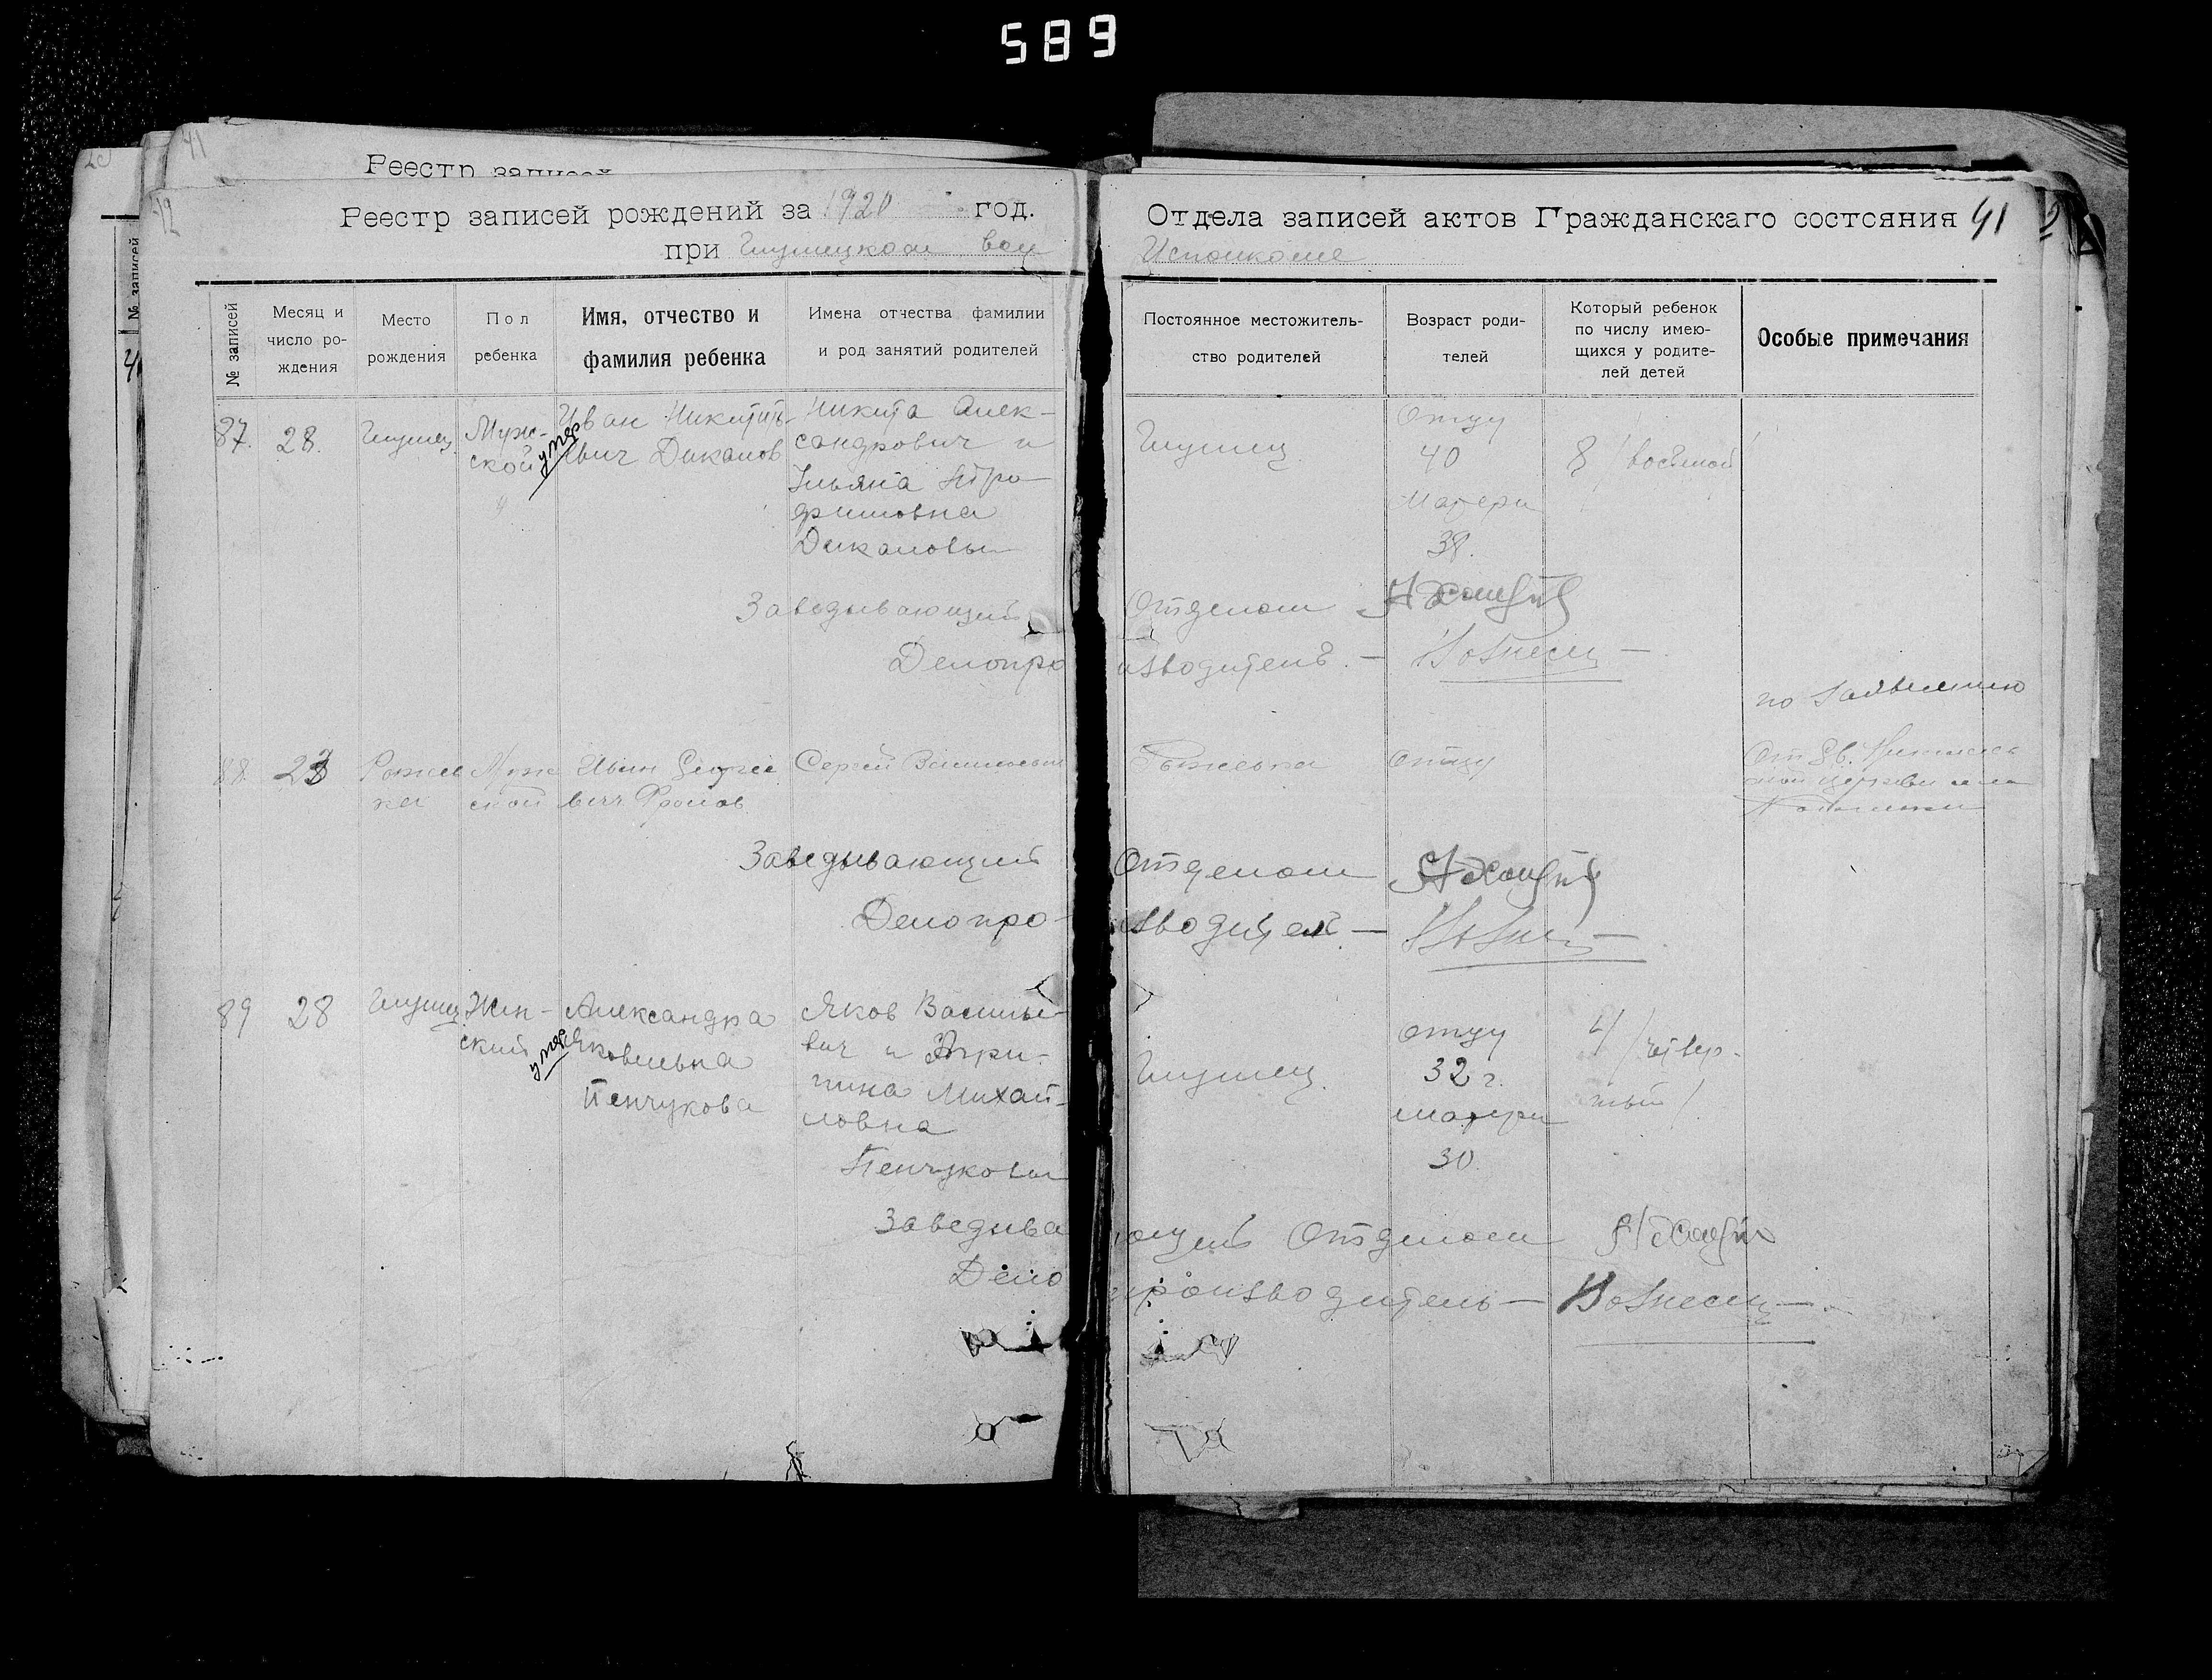 589
41
Реестр записей
42
Реестр записей рождений за 1920 год.
при Глушицком вол
Отдела записей актов Гражданскаго состояния 41
Исполкоме
№ записей
Месяц и число рождения
Место рождения
Пол ребенка
Имя, отчество и фамилия ребенка
Имена отчества фамилии и род занятий родителей
Постоянное местожительство родителей
Возраст родителей
Который ребенок по числу имеющихся у родителей детей
Особые примечания
87. 28. Глушиц. Муж-
ской
умер
Иван Никити-
евич Дикалов
Никита Алек-
сандрович и
Ульяна
фимовна
Дикаловы
Глушиц
Отцу
40
Матери
38.
8 / восьмой /
Заведывающий Отделом
Делопроизводитель. — Вознесен —
по заявлению
88 23
Муж
ской
Иван Сергее
вич Фролов
Сергей Васильевич
отцу
От Св.
церкви села
Заведывающий Отделом
Делопроизводитель —
89 28 Глушиц Жен-
ский
умер
Александра
Яковлевна
Пенчукова
Яков Василье-
вич и Агри-
пина Михай-
ловна
Пенчуковы
Глушиц.
отцу
32 г.
матери
30.
4 / четвер-
тый /
Заведывающий Отделом
Делопроизводитель — Вознесен —